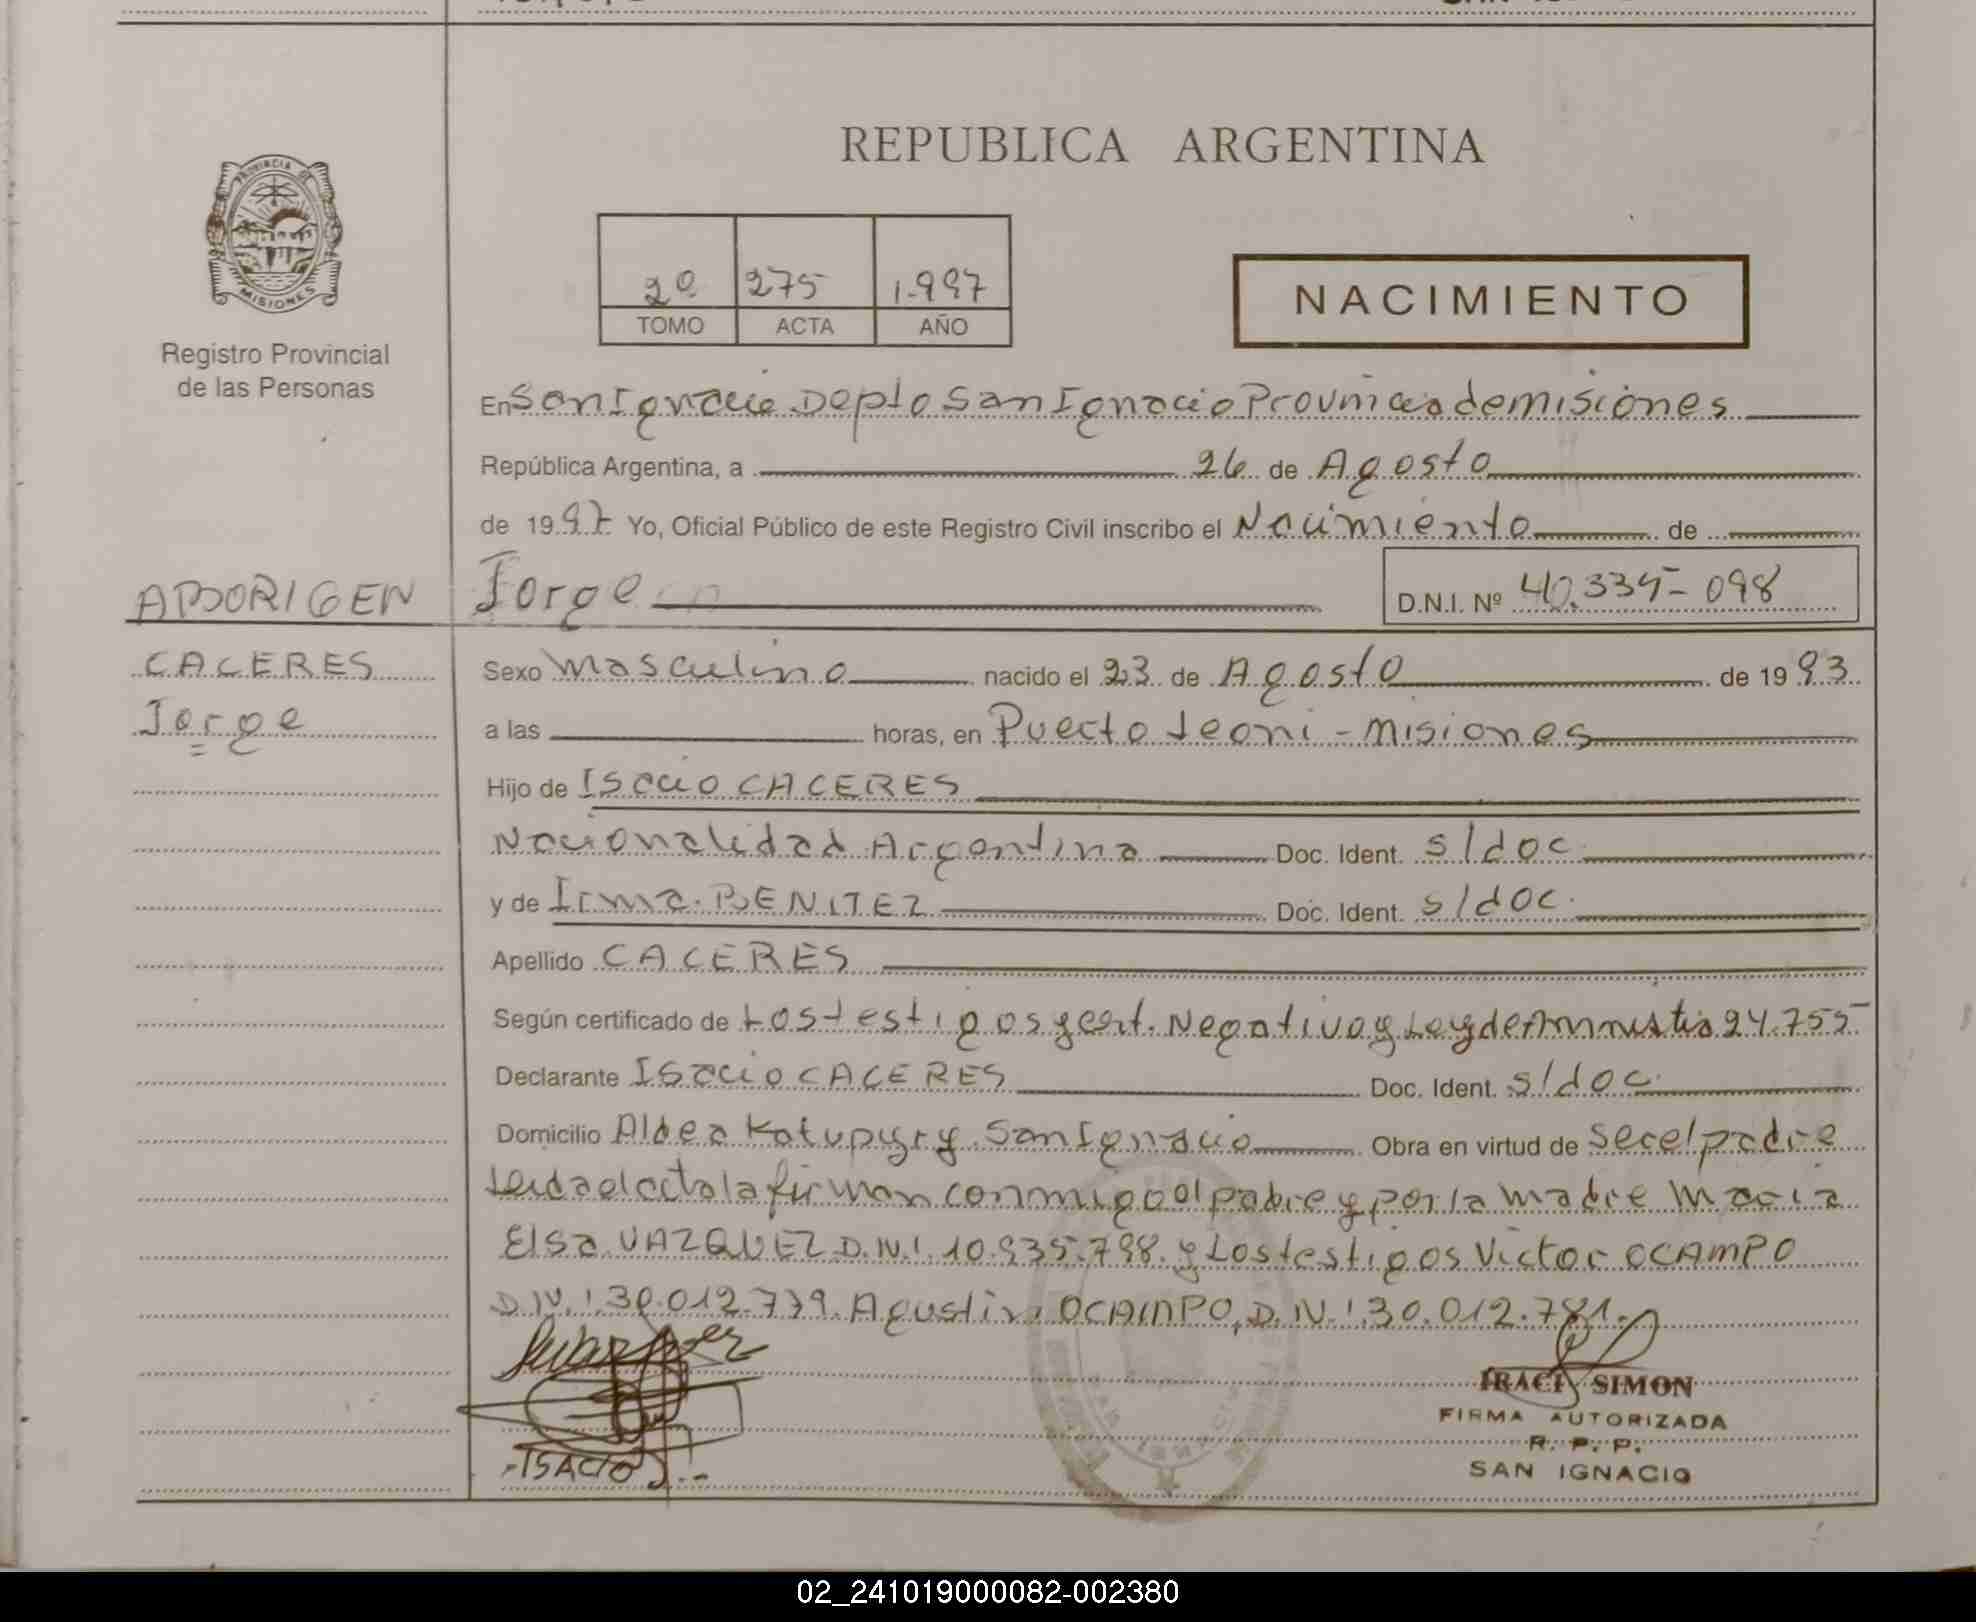 REPUBLICA ARGENTINA
PROVINCIA DE
MISIONES
Registro Provincial
de las Personas
2º 275 1.997
TOMO ACTA AÑO
NACIMIENTO
En San Ignacio Depto San Ignacio Provincia de misiones
República Argentina, a 26 de Agosto
de 1997 Yo, Oficial Público de este Registro Civil inscribo el Nacimiento de
ABORIGEN Jorge D.N.I. Nº 40.335-098
CACERES Sexo masculino nacido el 23 de Agosto de 1993
Jorge a las horas, en Puerto Leoni - misiones
Hijo de Isacio CACERES
Nacionalidad Argentina Doc. Ident. s/doc.
y de Irma BENITEZ Doc. Ident. s/doc.
Apellido CACERES
Según certificado de Los testigos y cert. Negativo y Ley de Amnistia 24.755
Declarante Isacio CACERES Doc. Ident. s/doc.
Domicilio Aldea Katupyry San Ignacio Obra en virtud de ser el padre
Leida el acta la firman conmigo el padre y por la madre Maria
Elsa VAZQUEZ D.N.I. 10.935.798. y Los testigos Victor OCAMPO
D.N.I. 30.012.779. Agustin OCAMPO, D.N.I 30.012.781.
IRACI SIMON
FIRMA AUTORIZADA
R. P. P.
ISACIO SAN IGNACIO
02_241019000082-002380